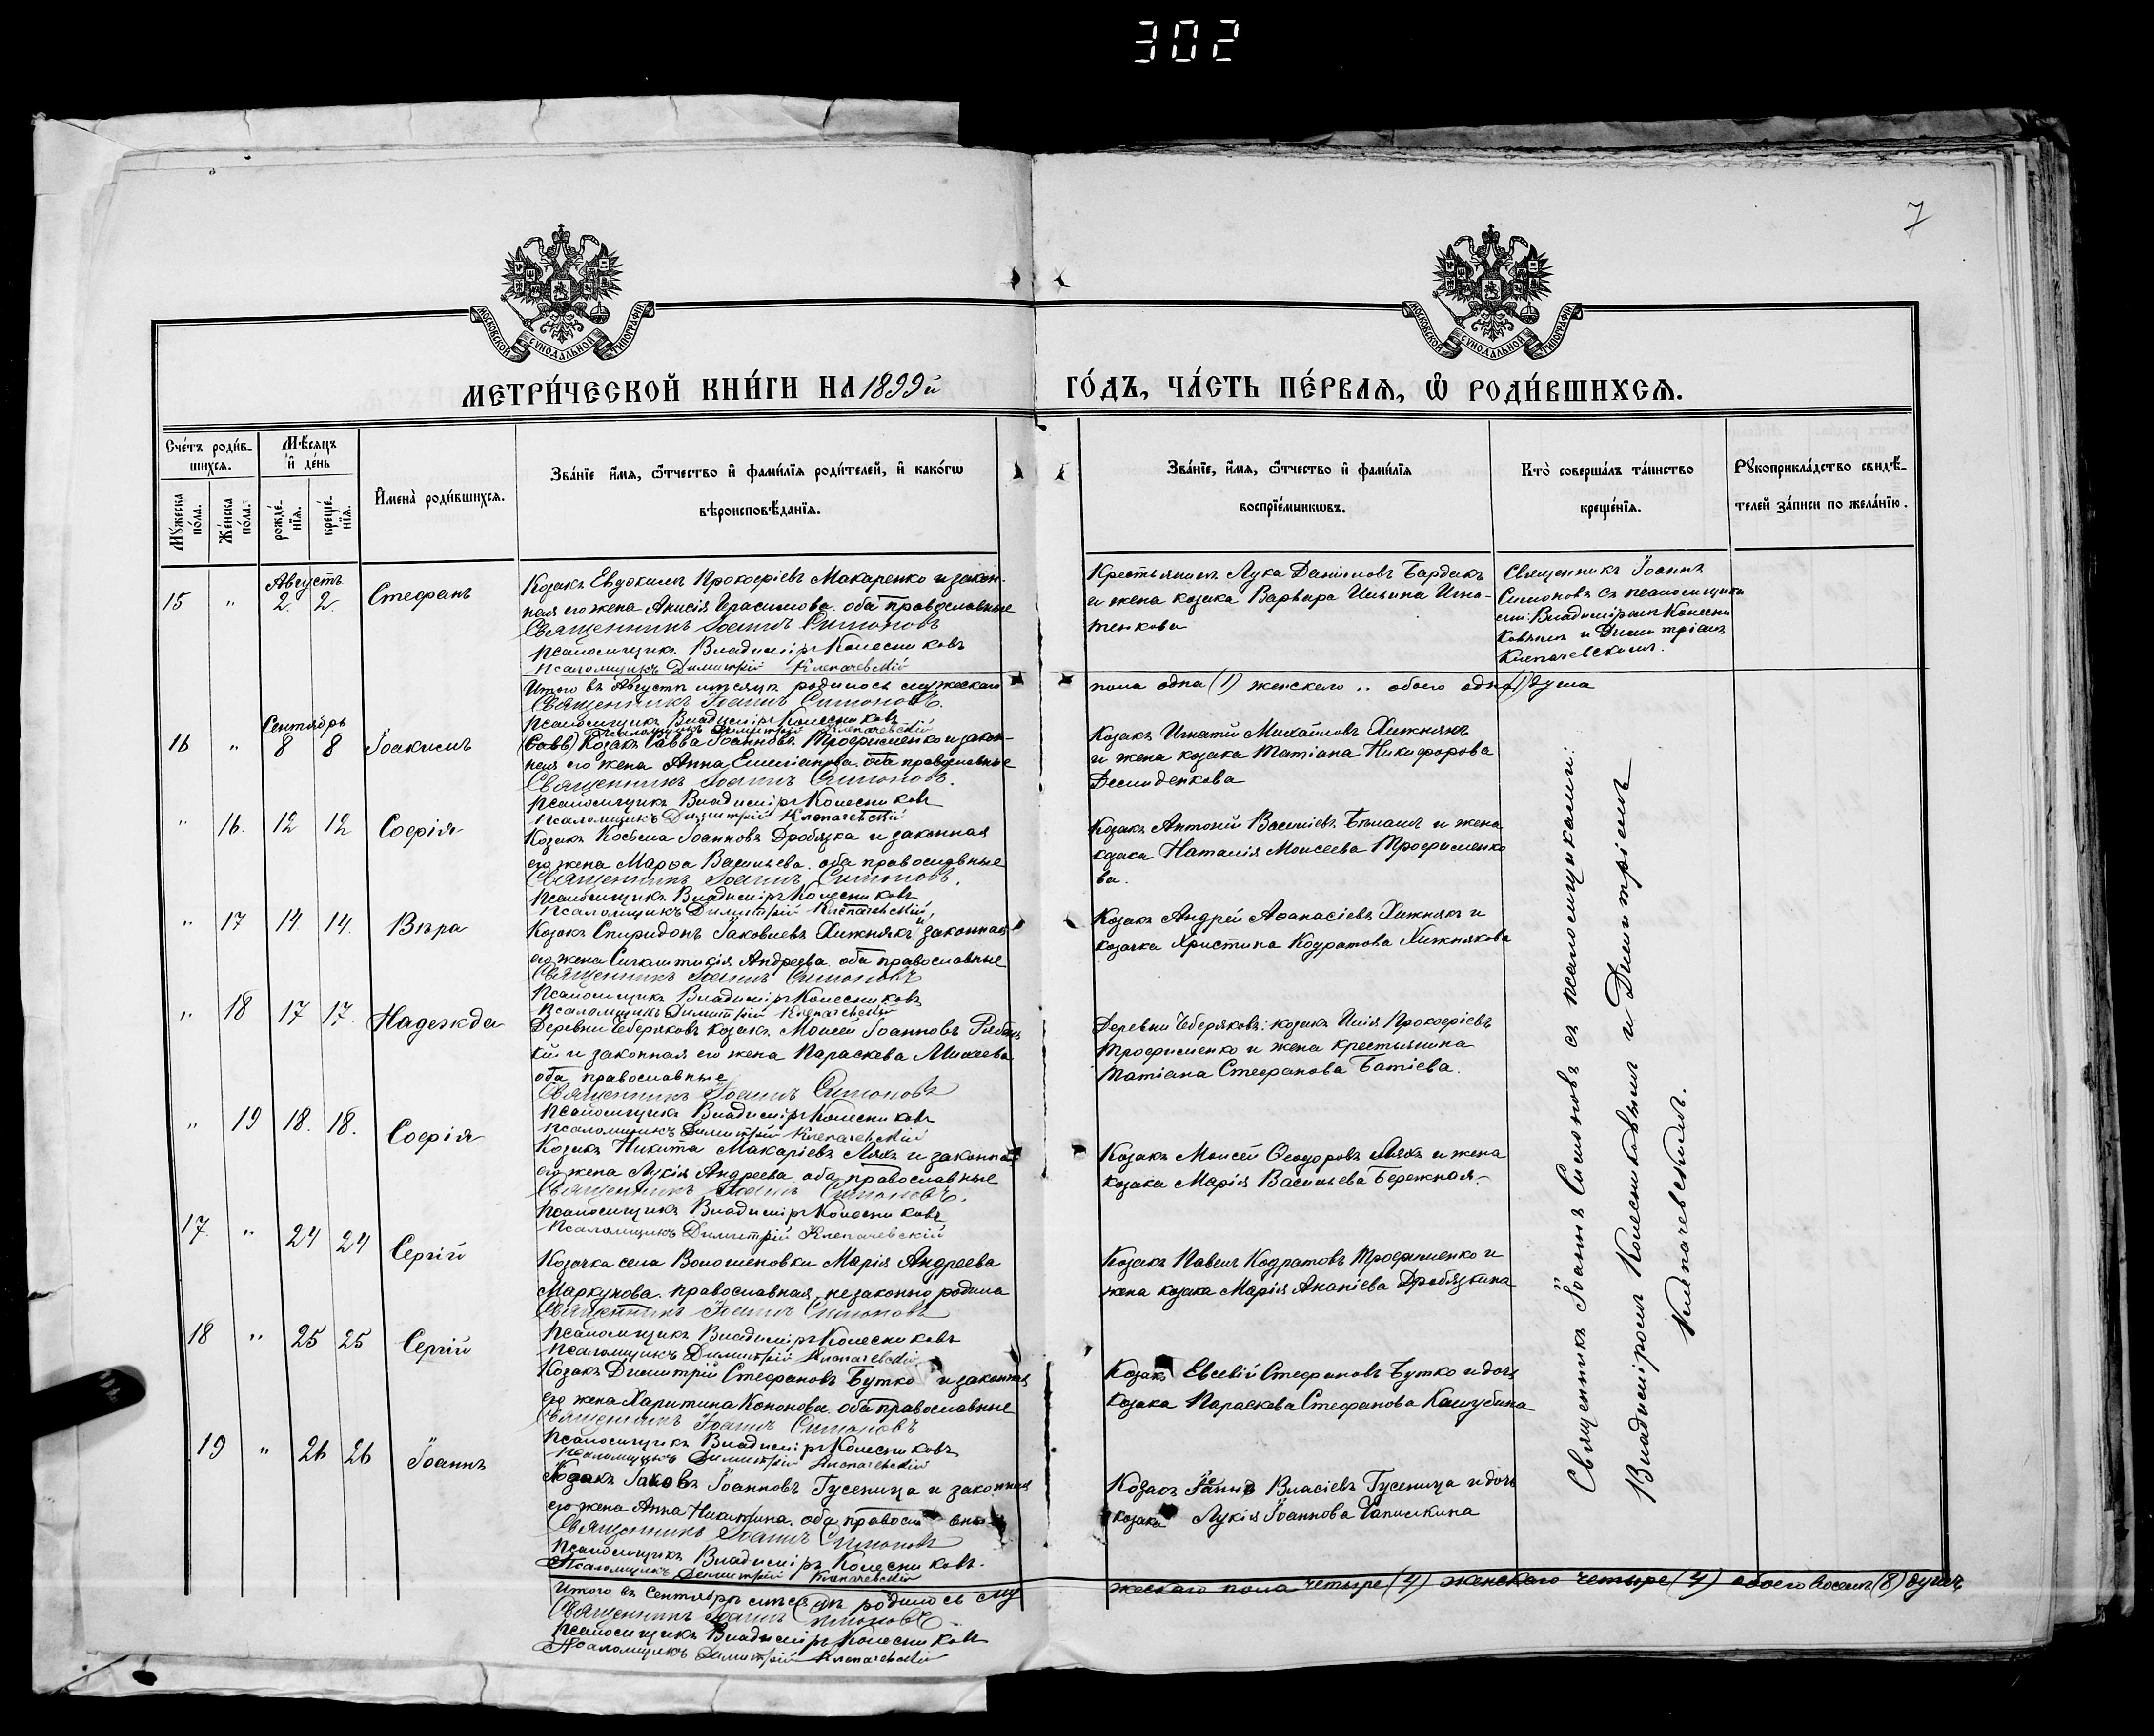 302
7
МОСКОВСКОЙ СѴНОДАЛЬНОЙ ТИПОГРАФІИ
МОСКОВСКОЙ СѴНОДАЛЬНОЙ ТИПОГРАФІИ
МЕТРИ́ЧЕСКОЙ КНИ́ГИ НА 1899й ГО́ДЪ, ЧА́СТЬ ПЕ́РВАЯ, Ѡ РОДИ́ВШИХСЯ.
Сче́тъ роди́в-
шихся.
Мѣ́сяцъ
и́ де́нь
Му́жеска по́ла.
Же́нска по́ла.
рожде́-
нїя.
креще́-
нїя.
И́мена̀ роди́вшихся.
Зва́нїе и́мя, ѻ҆́тчество и҆ фами́лїя роди́телей, и҆ како́гѡ
вѣроисповѣ́данїя.
Зва́нїе, и́мя, ѻ҆́тчество и҆ фами́лїя
воспрїе́мникѡвъ.
Кто̀ соверша́лъ та́инство
креще́нїя.
Рꙋкоприкла́дство свидѣ́-
телей за́писи по жела́нїю.
Августъ
15 " 2. 2. Стефанъ
Козакъ Евдокимъ Прокофіевъ Макаренко и закон-
ная его жена Анисія Герасимова. оба православные
Священникъ Іоаннъ Симоновъ
Псаломщикъ Владиміръ Колесниковъ
Псаломщикъ Димитрій Клепачевскій
Крестьянинъ Лука Даніиловъ Бардакъ
и жена козака Варвара Ильина Игна-
тенкова
Священникъ Іоаннъ
Симоновъ съ псаломщика
ми: Владиміромъ Колесни
ковымъ и Димитріемъ
Клепачевскимъ.
Итого въ Августѣ мѣсяцѣ родилось мужескаго пола одна (1) женскаго " обоего одна (1) душа
Священникъ Іоаннъ Симоновъ.
Псаломщикъ Владиміръ Колесниковъ
Псаломщикъ Димитрій Клепачевскій
Сентябрь
16 " 8 8 Іоакимъ
(Савв) Козакъ Савва Іоанновъ Трофименко и закон-
ная его жена Анна Емиліанова. оба православные
Священникъ Іоаннъ Симоновъ.
Псаломщикъ Владиміръ Колесниковъ
Псаломщикъ Димитрій Клепачевскій
Козакъ Игнатій Михайловъ Хижнякъ
и жена козака Татіана Никифорова
Демиденкова
" 16. 12 12 Софія
Козакъ Косьма Іоанновъ Дробязка и законная
его жена Марѳа Васильева. оба православные
Священникъ Іоаннъ Симоновъ.
Псаломщикъ Владиміръ Колесниковъ
Псаломщикъ Димитрій Клепачевскій
Козакъ Антоній Василіевъ Бѣлашъ и жена
козака Наталія Моисеева Трофименко
ва.
" 17 14. 14. Вѣра
Козакъ Спиридонъ Іаковлевъ Хижнякъ и законная
его жена Синклитикія Андреева. оба православные
Священникъ Іоаннъ Симоновъ
Псаломщикъ Владиміръ Колесниковъ
Псаломщикъ Димитрій Клепачевскій
Козакъ Андрей Аѳанасіевъ Хижнякъ и
козачка Христина Кодратова Хижнякова
" 18 17 17. Надежда
Деревни Чеберяковъ козакъ Моисей Іоанновъ
и законная его жена Параскева Михеева
оба православные
Священникъ Іоаннъ Симоновъ
Псаломщикъ Владиміръ Колесниковъ
Псаломщикъ Димитрій Клепачевскій
Деревни Чеберяковъ: козакъ Илія Прокофіевъ
Трофименко и жена крестьянина
Татіана Стефанова Батіева.
" 19 18. 18. Софія
Козакъ Никита Макаріевъ Ляхъ и законная
его жена Лукія Андреева. оба православные
Священникъ Іоаннъ Симоновъ.
Псаломщикъ Владиміръ Колесниковъ
Псаломщикъ Димитрій Клепачевскій
Козакъ Моисей Ѳеодоровъ Ляхъ и жена
козака Марія Васильева Бережная.
17. " 24 24 Сергій
Козачка села Волошеновки Марія Андреева
Маркунова. православная, незаконно родила
Священникъ Іоаннъ Симоновъ
Псаломщикъ Владиміръ Колесниковъ
Псаломщикъ Димитрій Клепачевскій
Козакъ Павелъ Кодратовъ Трофименко и
жена козака Марія Ананіева Дробязкина
18 " 25 25 Сергій
Козакъ Димитрій Стефановъ Бутко и законная
его жена Харитина Кононова. оба православные
Священникъ Іоаннъ Симоновъ
Псаломщикъ Владиміръ Колесниковъ
Псаломщикъ Димитрій Клепачевскій
Козакъ Евсевій Стефановъ Бутко и дочь
козака Параскева Стефанова Кашубина
19 " 26 26 Іоаннъ
Козакъ Іаковъ Іоанновъ Гусеница и законная
его жена Анна Никитина. оба православные
Священникъ Іоаннъ Симоновъ
Псаломщикъ Владиміръ Колесниковъ.
Псаломщикъ Димитрій Клепачевскій
Козакъ Власіевъ Гусеница и дочь
козака Лукія Іоаннова
Священникъ Іоаннъ Симоновъ съ псаломщиками:
Владиміромъ Колесниковымъ и Димитріемъ
Клепачевскимъ.
Итого въ Сентябрѣ мѣсяцѣ родилось му жескаго пола четыре (4) женскаго четыре (4) обоего восемь (8) душъ
Священникъ Іоаннъ Симоновъ
Псаломщикъ Владиміръ Колесниковъ
Псаломщикъ Димитрій Клепачевскій